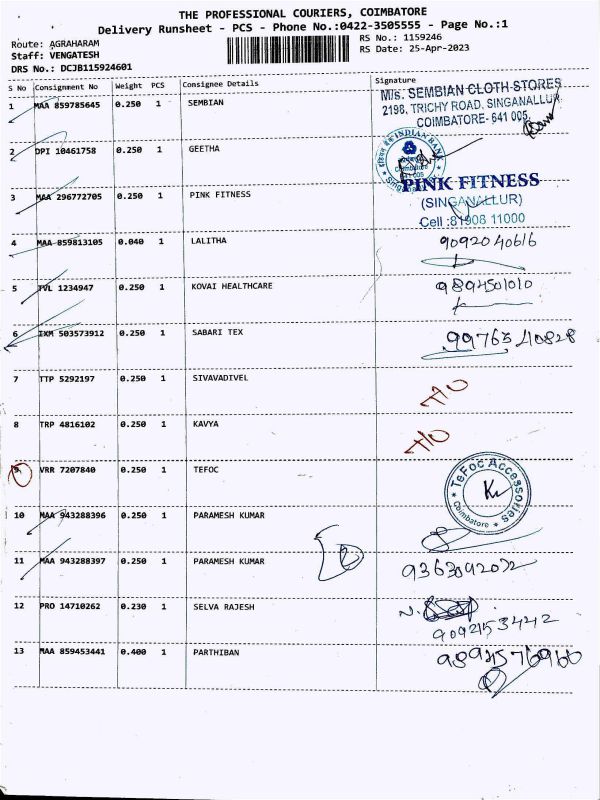 THE PROFESSIONAL COURIERS, COIMBATORE
Delivery Runsheet - PCS - Phone No.:0422-3505555 - Page No.:1
Route: AGRAHARAM
Staff: VENGATESH
DRS No.: DCJB115924601
RS No.: 1159246
RS Date: 25-Apr-2023
S No Consignment No Weight PCS Consignee Details Signature
1 MAA 859785645 0.250 1 SEMBIAN
M/s. SEMBIAN CLOTH STORES
2198, TRICHY ROAD, SINGANALLUR
COIMBATORE- 641 005.
2 DPI 10461758 0.250 1 GEETHA
INDIAN BANK
Coimbatore
641 005
3 MAA 296772705 0.250 1 PINK FITNESS
PINK FITNESS
(SINGANALLUR)
Cell :81908 11000
4 MAA 859813105 0.040 1 LALITHA 9092040616
5 TVL 1234947 0.250 1 KOVAI HEALTHCARE 9894501010
6 IXM 503573912 0.250 1 SABARI TEX 9976540828
7 TTP 5292197 0.250 1 SIVAVADIVEL
8 TRP 4816102 0.250 1 KAVYA
9 VRR 7207840 0.250 1 TEFOC
TeFoc Accessories
Coimbatore
10 MAA 943288396 0.250 1 PARAMESH KUMAR
11 MAA 943288397 0.250 1 PARAMESH KUMAR
12 PRO 14710262 0.230 1 SELVA RAJESH
N.
9092153442
13 MAA 859453441 0.400 1 PARTHIBAN